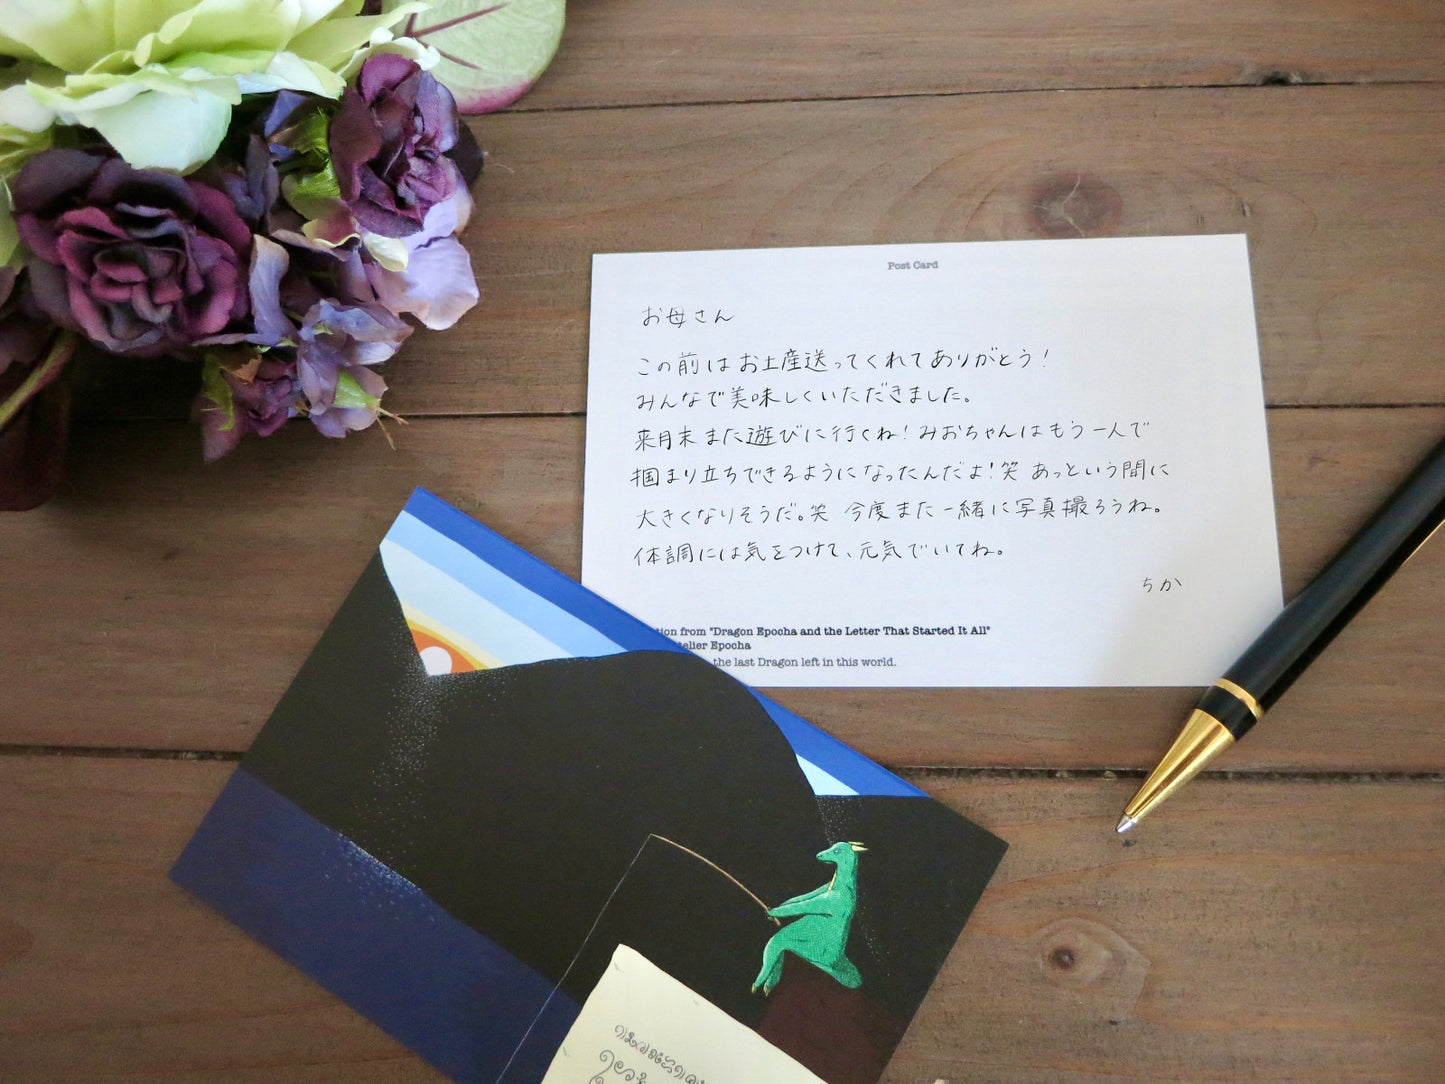 Post Card
お母さん
この前はお土産送ってくれてありがとう！
みんなで美味しくいただきました。
来月末また遊びに行くね！みおちゃんはもう一人で
掴まり立ちできるようになったんだよ！笑 あっという間に
大きくなりそうだ。笑 今度また一緒に写真撮ろうね。
体調には気をつけて、元気でいてね。
ちか
tion from "Dragon Epocha and the Letter That Started It All"
telier Epocha
the last Dragon left in this world.